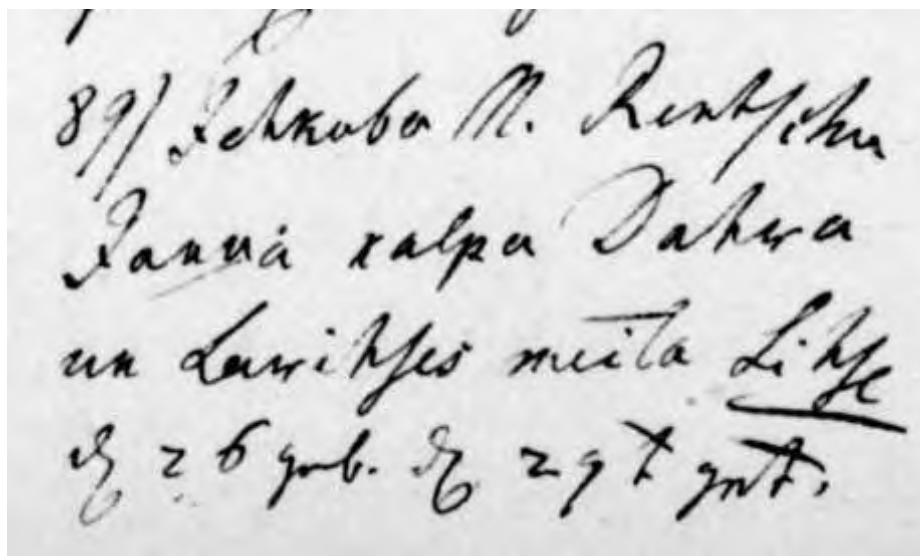 89) Jehkuba M. Rentschu
Janná kalpa Dahwa
un Lawihses meita Lihse
26 geb. 29 t get.